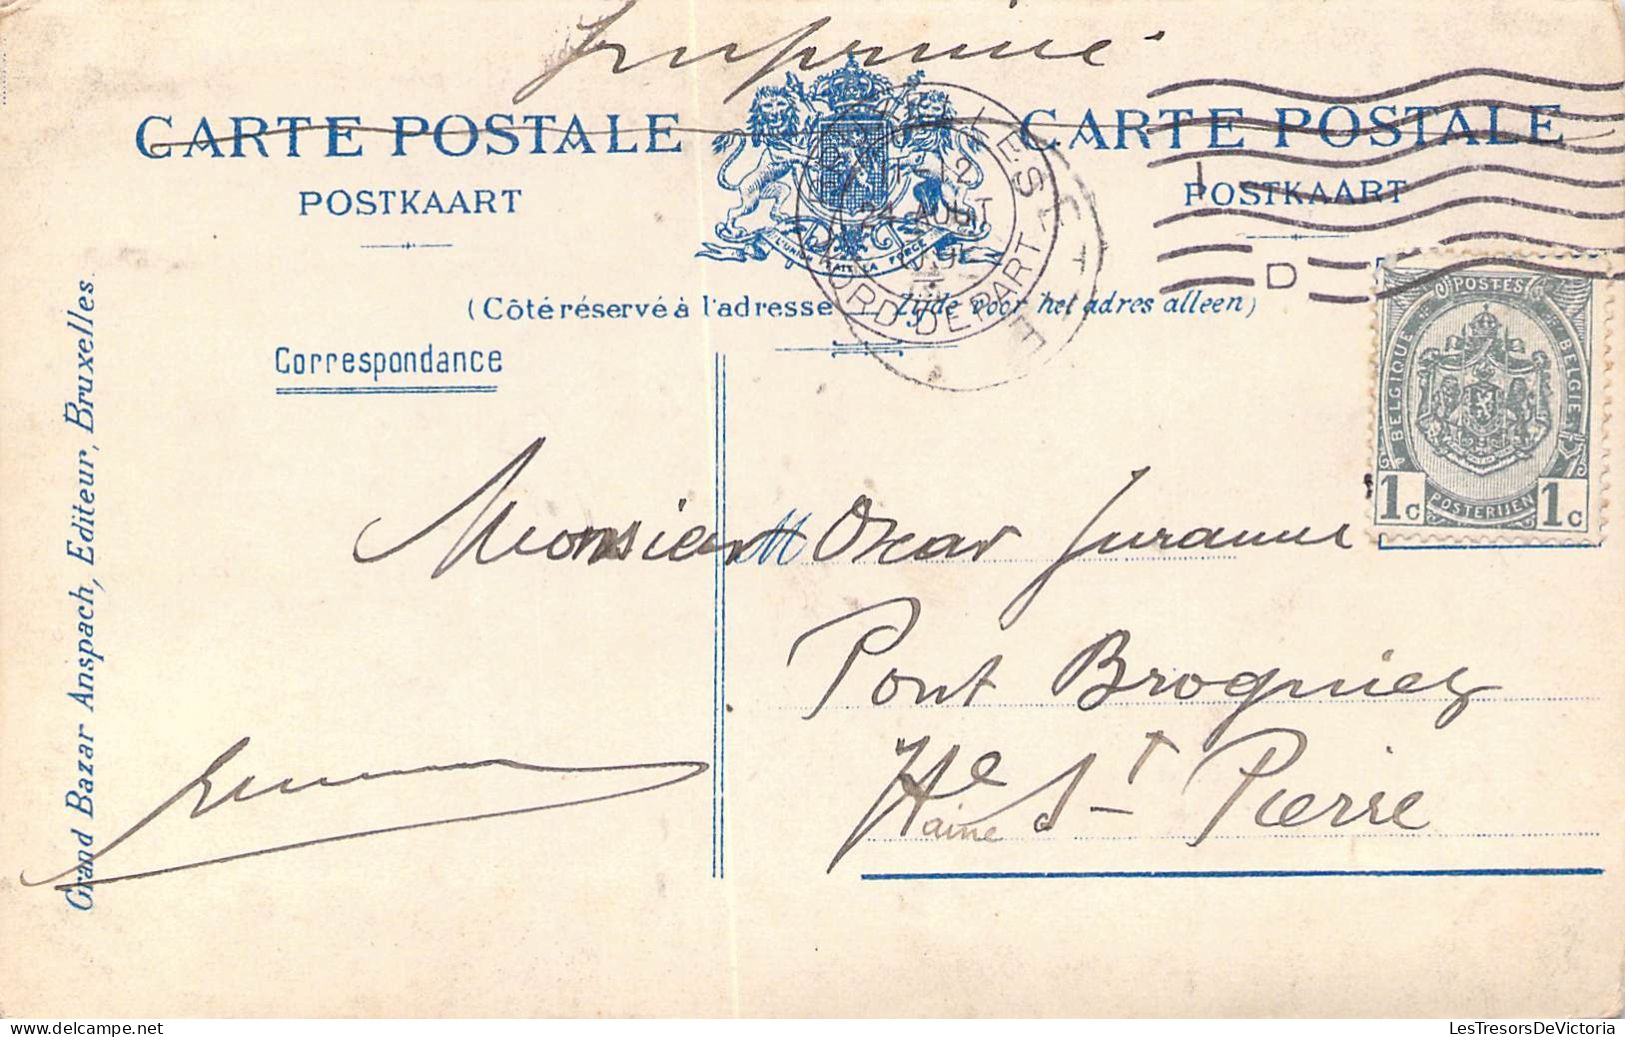 Imprimé
CARTE POSTALE
CARTE POSTALE
POSTKAART
POSTKAART
L'UNION FAIT LA FORCE
24 AOUT
NORD DEPART
D
(Côté réservé à l'adresse — Zijde voor het adres alleen)
Correspondance
POSTES
BELGIQUE
BELGIE
POSTERIJEN
1c
1c
Monsieur M Oscar
Pont Brogniez
Hte St Pierre
Haine
Grand Bazar Anspach, Editeur, Bruxelles
LesTresorsDeVictoria